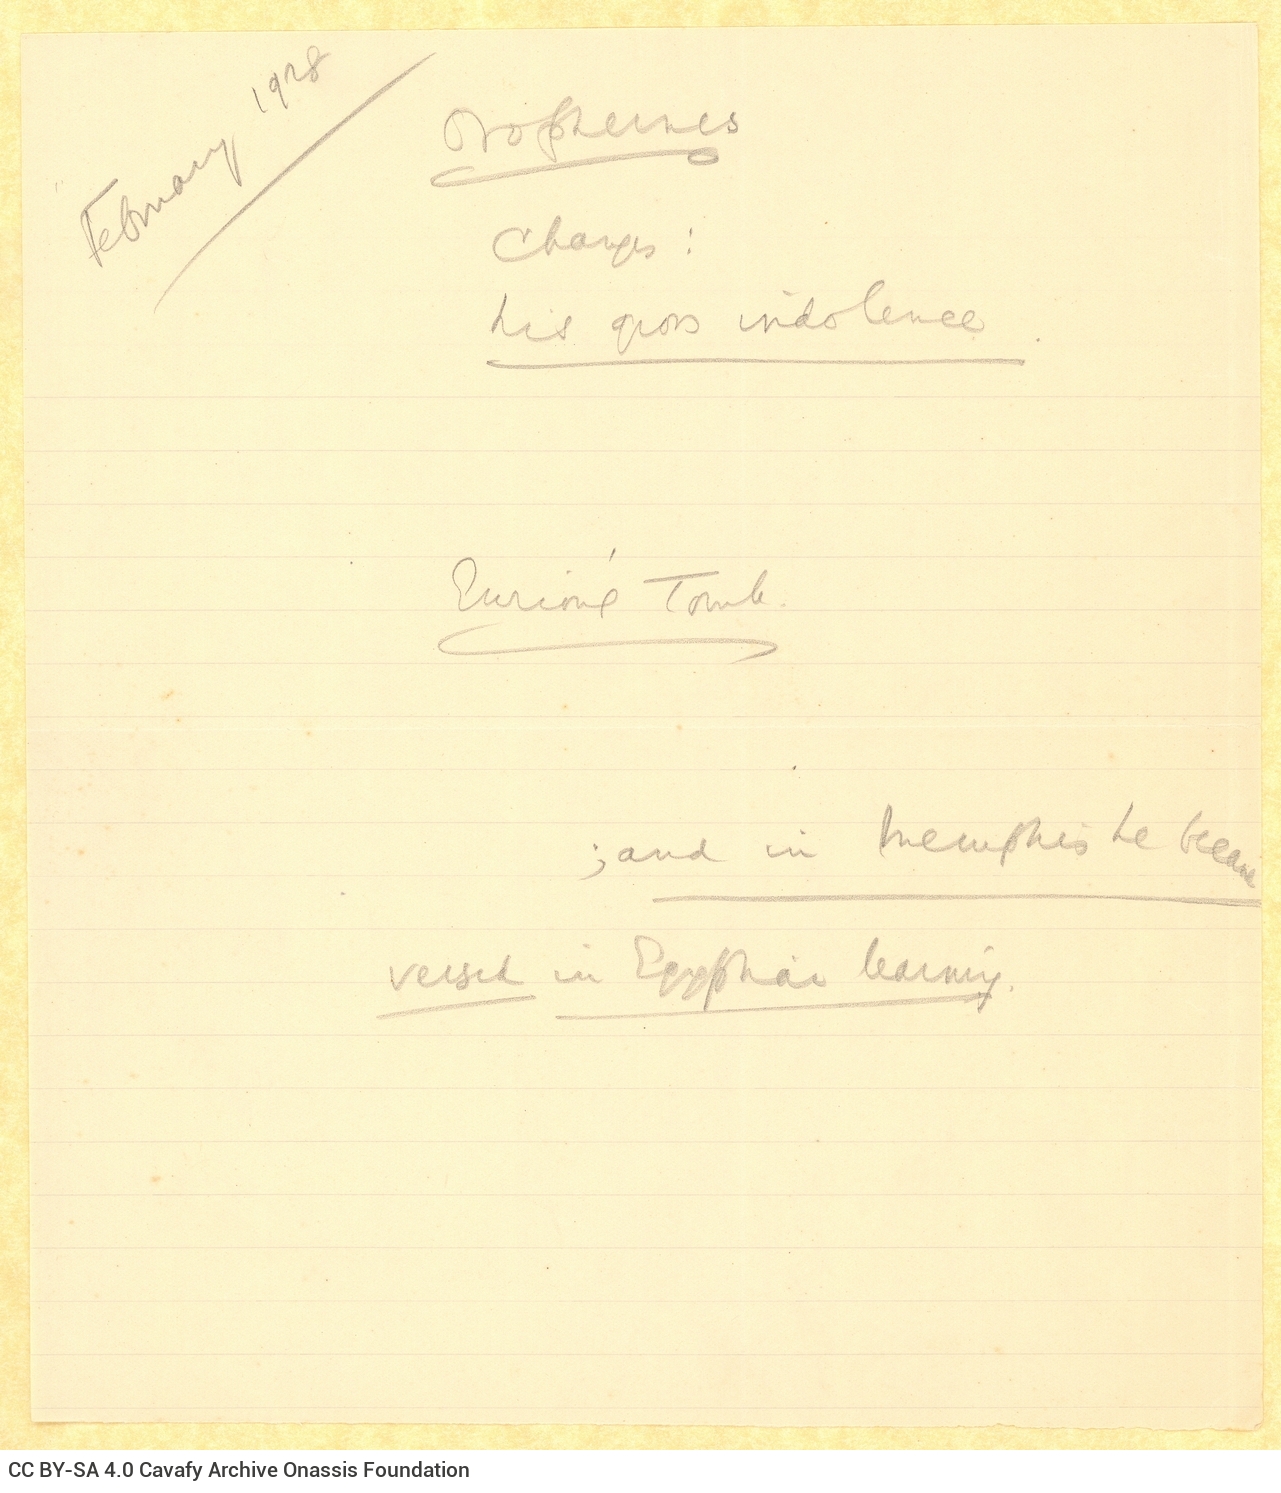 February 1928
Orophernes
Changes:
his gross indolence.
Eurion's Tomb.
; and in Memphis he became
versed in Egyptian learning.
CC BY-SA 4.0 Cavafy Archive Onassis Foundation